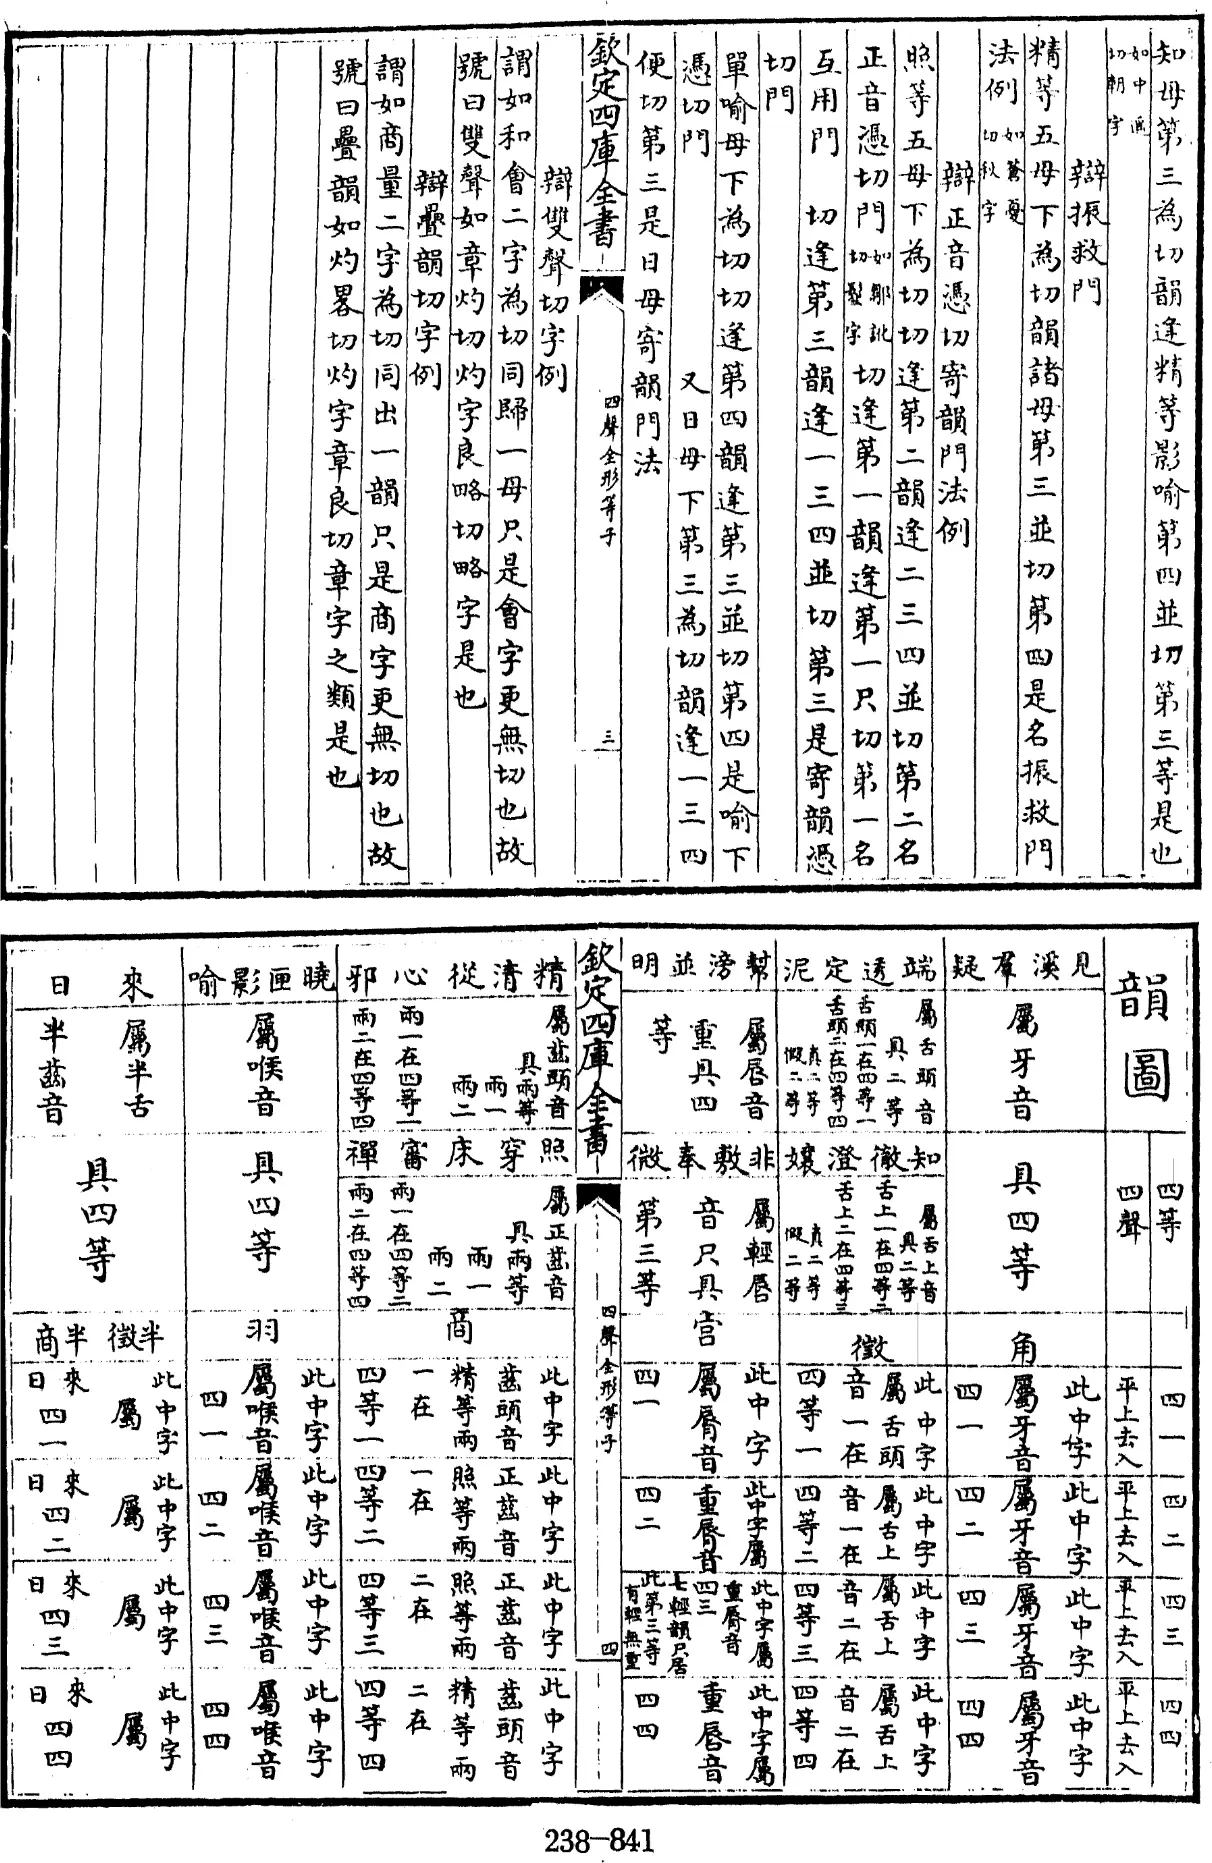 知母第三為切韻逢精等影喻第四並切第三等是也
如中遙切朝字
辯振救門
精等五母下為切韻諸母第三並切第四是名振救門
法例如蒼憂切秋字
辯正音憑切寄韻門法例
照等五母下為切切逢第二韻逢二三四並切第二名
正音憑切門如鄒訧切鄒字切逢第一韻逢第一只切第一名
互用門 切逢第三韻逢一三四並切第三是寄韻憑
切門
單喻母下為切切逢第四韻逢第三並切第四是喻下
憑切門 又日母下第三為切韻逢一三四
便切第三是日母寄韻門法
欽定四庫全書
四聲全形等子
三
辯雙聲切字例
謂如和會二字為切同歸一母只是會字更無切也故
號曰雙聲如章灼切灼字良略切略字是也
辯疊韻切字例
謂如商量二字為切同出一韻只是商字更無切也故
號曰疊韻如灼畧切灼字章良切章字之類是也
韻圖
四等
四聲
四一
平上去入
四二
平上去入
四三
平上去入
四四
平上去入
見溪羣疑
屬牙音
具四等
角
此中字屬牙音四一
此中字屬牙音四二
此中字屬牙音四三
此中字屬牙音四四
端透定泥
屬舌頭音
具二等
舌頭一在四等一
舌頭二在四等四
真二等
假二等
知徹澄孃
屬舌上音
具二等
舌上一在四等二
舌上二在四等三
真二等
假二等
徵
此中字屬舌頭音一在四等一
此中字屬舌上音一在四等二
此中字屬舌上音二在四等三
此中字屬舌上音二在四等四
幫滂並明
屬唇音
重具四等
非敷奉微
屬輕唇音只具第三等
宮
此中字屬脣音四一
此中字屬重脣音四二
此中字屬重脣音四三
七輕韻只居此第三等有輕無重
此中字屬重唇音四四
欽定四庫全書
四聲全形等子
四
精清從心邪
屬齒頭音
具兩等
兩一
兩二
兩一在四等一
兩二在四等四
照穿床審禪
屬正齒音
具兩等
兩一
兩二
兩一在四等二
兩二在四等四
商
此中字齒頭音精等兩一在四等一
此中字正齒音照等兩一在四等二
此中字正齒音照等兩二在四等三
此中字齒頭音精等兩二在四等四
曉匣影喻
屬喉音
具四等
羽
此中字屬喉音四一
此中字屬喉音四二
此中字屬喉音四三
此中字屬喉音四四
來日
屬半舌
半齒音
具四等
半徵半商
此中字屬來日四一
此中字屬來日四二
此中字屬來日四三
此中字屬來日四四
238-841